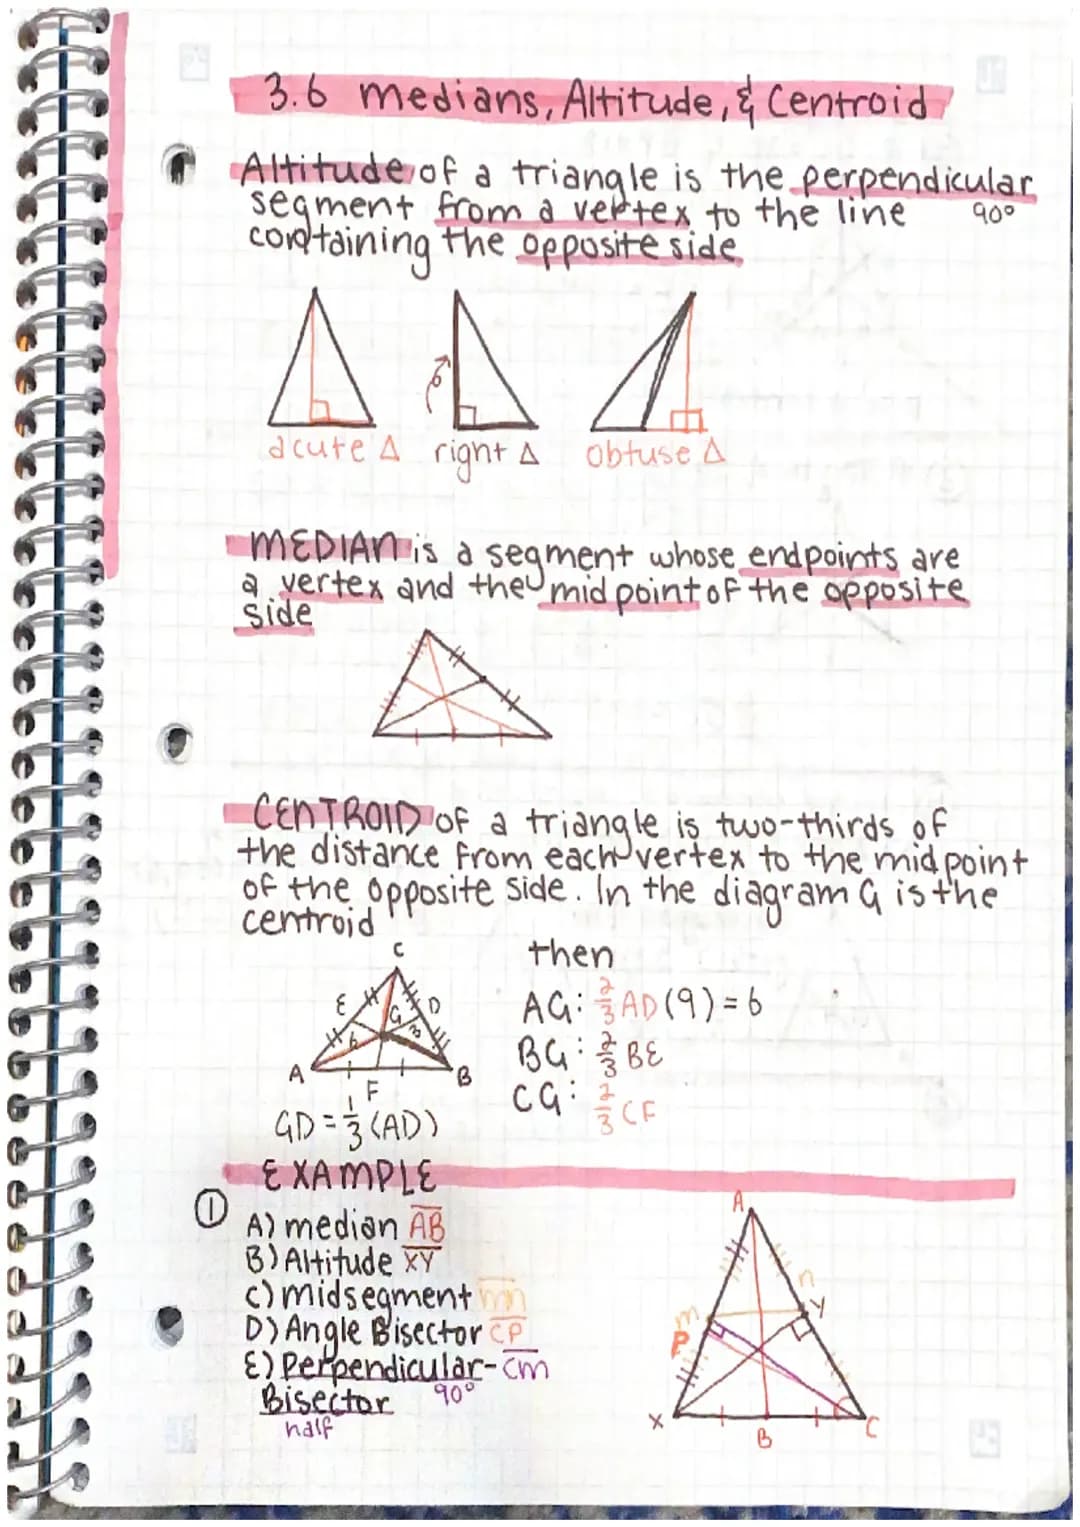 3.6 medians, Altitude, & Centroid
Altitude of a triangle is the perpendicular
segment from a vertex to the line 90°
containing the opposite side
acute Δ right Δ obtuse Δ
MEDIAN is a segment whose endpoints are
a vertex and the midpoint of the opposite
side
CENTROID of a triangle is two-thirds of
the distance from each vertex to the midpoint
of the opposite side. In the diagram G is the
centroid
then
C
E G D
6 3
A F B
AG: 2/3 AD (9) = 6
BG: 2/3 BE
CG: 2/3 CF
GD = 1/3 (AD)
EXAMPLE
① A) median AB
B) Altitude XY
C) midsegment mn
D) Angle Bisector CP
E) Perpendicular- Cm
Bisector 90°
half
A
m n
P Y
X B C